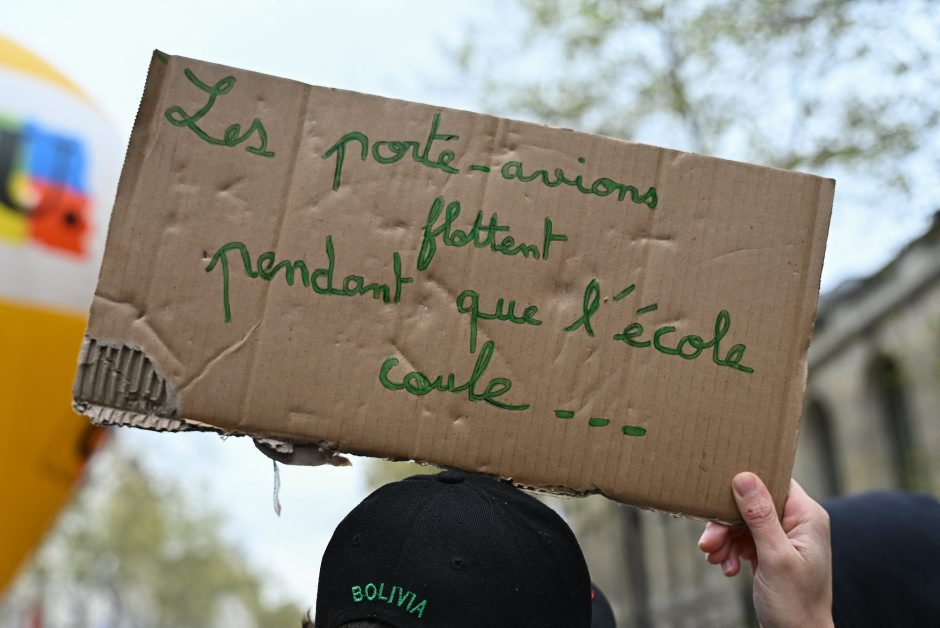 Les porte-avions
flottent
pendant que l'école
coule ----
BOLIVIA